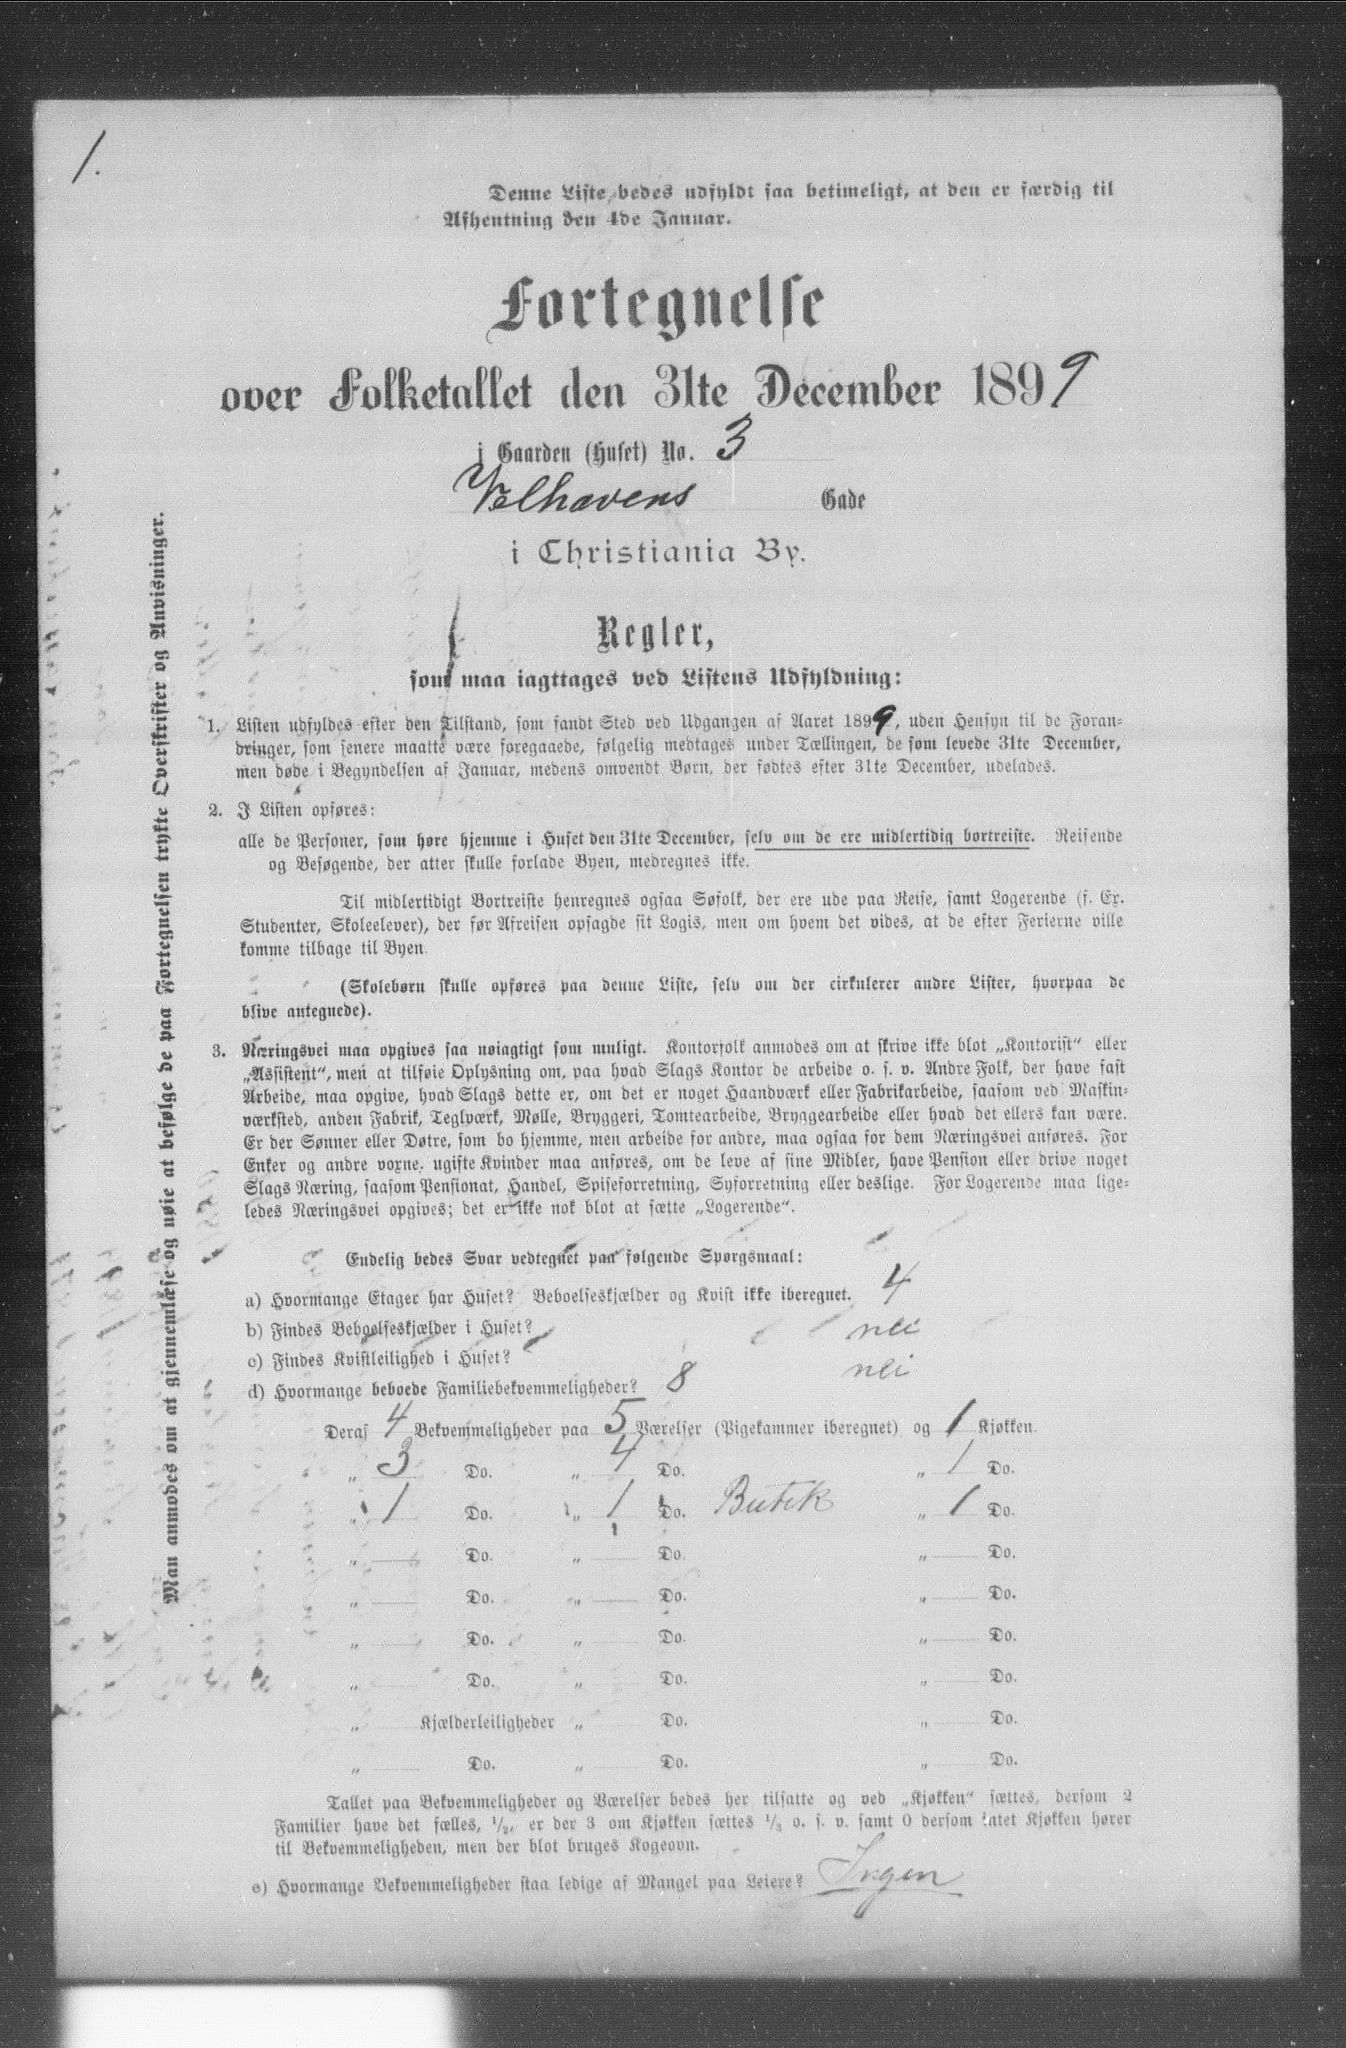 1.
Denne Liste bedes udfyldt saa betimeligt, at den er færdig til
Afhentning den 4de Januar.
Fortegnelse
over Folketallet den 31te December 1899
i Gaarden (Huset) No. 3
Velhavens Gade
i Christiania By.
Regler,
som maa iagttages ved Listens Udfyldning:
1. Listen udfyldes efter den Tilstand, som fandt Sted ved Udgangen af Aaret 1899, uden Hensyn til de Foran-
dringer, som senere maatte være foregaaede, følgelig medtages under Tællingen, de som levede 31te December,
men døde i Begyndelsen af Januar, medens omvendt Børn, der fødtes efter 31te December, udelades.
2. I Listen opføres:
alle de Personer, som høre hjemme i Huset den 31te December, selv om de ere midlertidig bortreiste. Reisende
og Besøgende, der atter skulle forlade Byen, medregnes ikke.
Til midlertidigt Bortreiste henregnes ogsaa Søfolk, der ere ude paa Reise, samt Logerende (f. Ex.
Studenter, Skoleelever), der før Afreisen opsagde sit Logis, men om hvem det vides, at de efter Ferierne ville
komme tilbage til Byen.
(Skolebørn skulle opføres paa denne Liste, selv om der cirkulerer andre Lister, hvorpaa de
blive antegnede).
3. Næringsvei maa opgives saa nøiagtigt som muligt. Kontorfolk anmodes om at skrive ikke blot „Kontorist“ eller
„Assistent“, men at tilføie Oplysning om, paa hvad Slags Kontor de arbeide o. s. v. Andre Folk, der have fast
Arbeide, maa opgive, hvad Slags dette er, om det er noget Haandværk eller Fabrikarbeide, saasom ved Maskin-
værksted, anden Fabrik, Teglværk, Mølle, Bryggeri, Tomtearbeide, Bryggearbeide eller hvad det ellers kan være.
Er der Sønner eller Døtre, som bo hjemme, men arbeide for andre, maa ogsaa for dem Næringsvei anføres. For
Enker og andre voxne, ugifte Kvinder maa anføres, om de leve af sine Midler, have Pension eller drive noget
Slags Næring, saasom Pensionat, Handel, Spiseforretning, Syforretning eller deslige. For Logerende maa lige-
ledes Næringsvei opgives; det er ikke nok blot at sætte „Logerende“.
Endelig bedes Svar vedtegnet paa følgende Spørgsmaal:
a) Hvormange Etager har Huset? Beboelseskjælder og Kvist ikke iberegnet. 4
b) Findes Beboelseskjælder i Huset? nei
c) Findes Kvistleilighed i Huset? nei
d) Hvormange beboede Familiebekvemmeligheder? 8
Deraf 4 Bekvemmeligheder paa 5 Værelser (Pigekammer iberegnet) og 1 Kjøkken.
„ 3 Do. „ 4 Do. „ 1 Do.
„ 1 Do. „ 1 Do. Butik „ 1 Do.
„ Do. „ Do. „ Do.
„ Do. „ Do. „ Do.
„ Do. „ Do. „ Do.
„ Do. „ Do. „ Do.
„ Kjælderleiligheder „ Do. „ Do.
„ Do. „ Do. „ Do.
Tallet paa Bekvemmeligheder og Værelser bedes her tilsatte og ved „Kjøkken“ sættes, dersom 2
Familier have det fælles, 1/2, er der 3 om Kjøkken sættes 1/3 o. s. v. samt 0 dersom intet Kjøkken hører
til Bekvemmeligheden, men der blot bruges Kogeovn.
e) Hvormange Bekvemmeligheder staa ledige af Mangel paa Leiere? Ingen
Man anmodes om at gjennemlæse og nøie at befølge de paa Fortegnelsen trykte Overskrifter og Anvisninger.